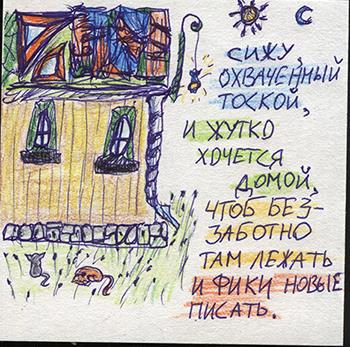 СИЖУ,
ОХВАЧЕННЫЙ
ТОСКОЙ,
И ЖУТКО
ХОЧЕТСЯ
ДОМОЙ,
ЧТОБ БЕЗ-
ЗАБОТНО
ТАМ ЛЕЖАТЬ
И ФИКИ НОВЫЕ
ПИСАТЬ.